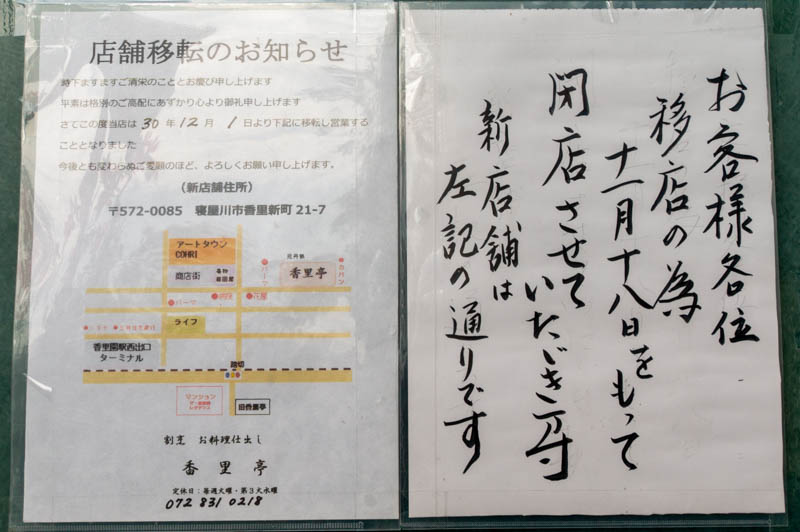 店舗移転のお知らせ
時下ますますご清栄のこととお慶び申し上げます
平素は格別のご高配にあずかり心より御礼申し上げます
さてこの度当店は 30 年 12 月 1 日より下記に移転し営業する
こととなりました
今後とも変わらぬご愛顧のほど、よろしくお願い申し上げます。
（新店舗住所）
〒572-0085 寝屋川市香里新町 21-7
アートタウン
COHRI
商店街
パーマ
香里亭
カバン
パーマ
花屋
ライフ
香里園駅西出口
ターミナル
踏切
マンション
旧香里亭
割烹 お料理仕出し
香里亭
定休日：毎週火曜・第3水曜
072 831 0218
お客様各位
移店の為
十一月十八日をもって
閉店させて
いただきます
新店舗は
左記の通りです